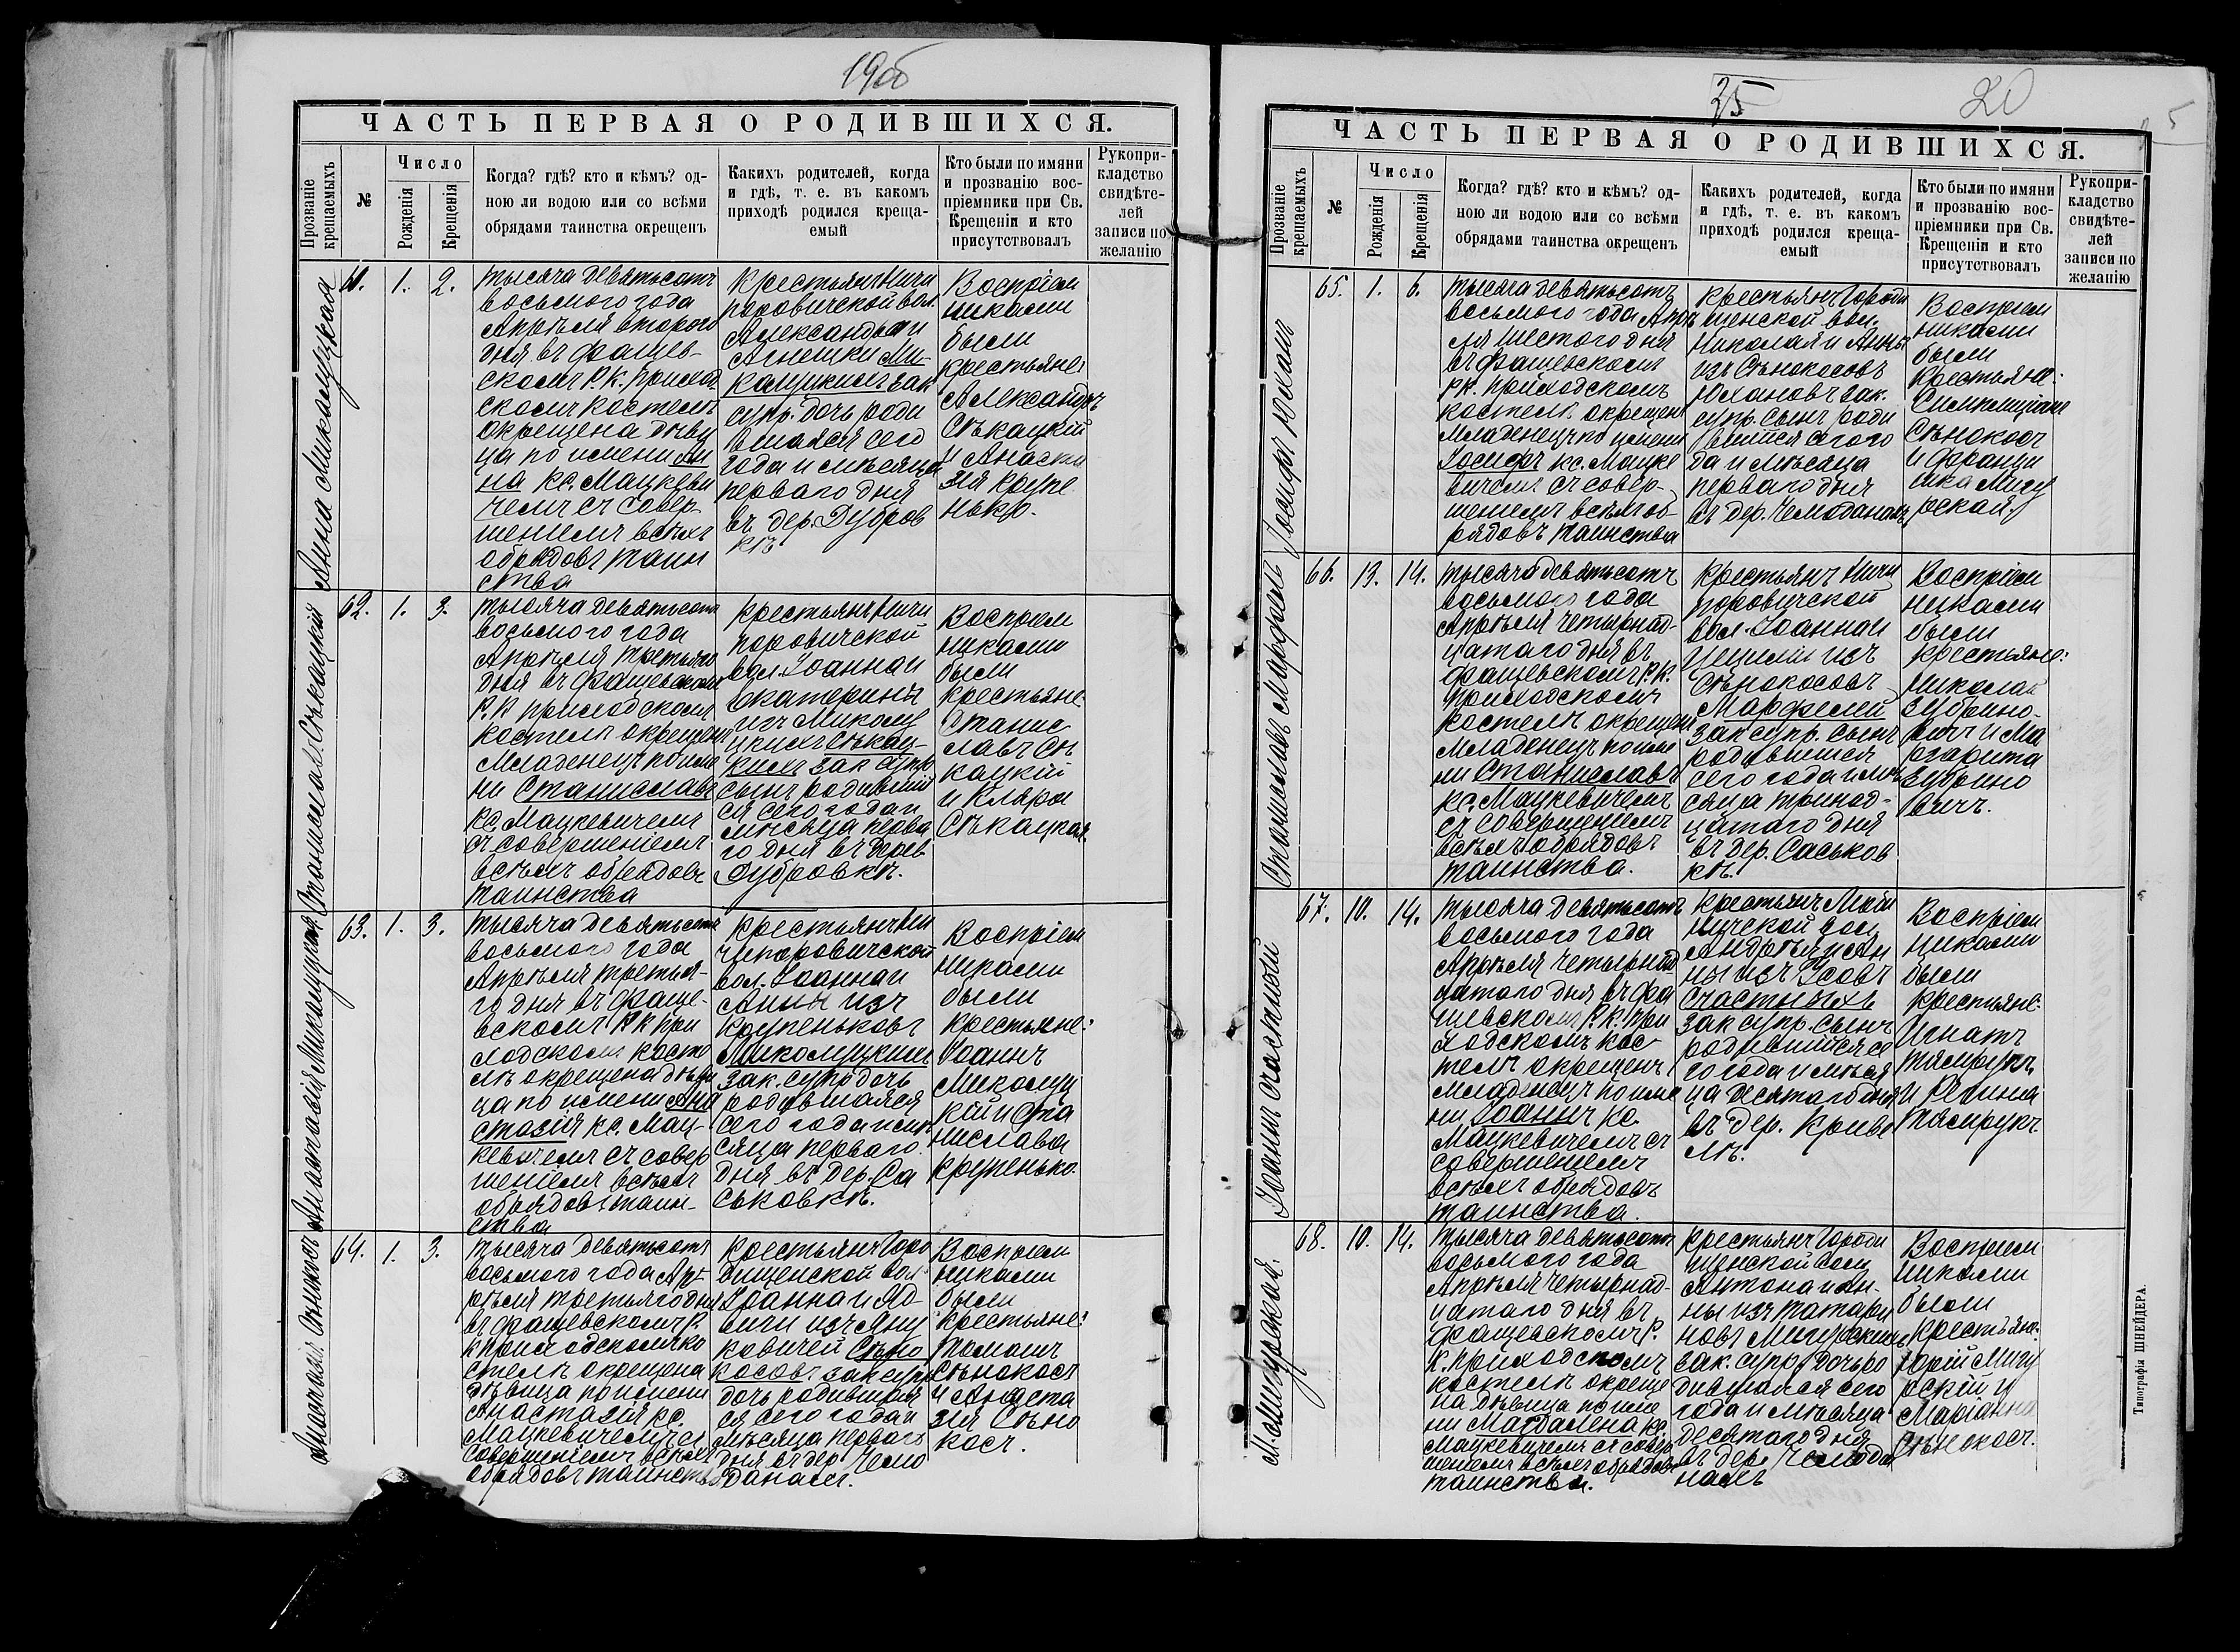 1908
ЧАСТЬ ПЕРВАЯ О РОДИВШИХСЯ.
Прозваніе крещаемыхъ
№
Число
Рожденія
Крещенія
Когда? гдѣ? кто и кѣмъ? од-
ною ли водою или со всѣми
обрядами таинства окрещенъ
Какихъ родителей, когда
и гдѣ, т. е. въ какомъ
приходѣ родился креща-
емый
Кто были по имяни
и прозванію вос-
пріемники при Св.
Крещеніи и кто
присутствовалъ
Рукопри-
кладство
свидѣте-
лей
записи по
желанію
Анна Микамуцкая
61. 1. 2.
тысяча девятьсотъ
восьмого года
Апрѣля второго
дня въ Фащев-
скомъ Р.К. приход
скомъ костелѣ
окрещена дѣви
ца по имени Ан
на кс. Мацкеви
чемъ съ совер-
шеніемъ всѣхъ
обрядовъ таин
ства
Крестьянъ Ничи
поровичской вол.
Александра и
Агнешки Ми-
камуцкихъ зак
супр. дочь роди
вшаяся сего
года и мѣсяца
перваго дня
въ дер. Дубров
кѣ
Воспріем
никами
были
крестьяне:
Александръ
Сѣкацкій
и Анаста
зія Крупе
нько.
Станиславъ Сѣкацкій
62. 1. 3.
тысяча девятьсотъ
восьмого года
Апрѣля третьяго
дня въ Фащевскомъ
Р.К приходскомъ
костелѣ окрещенъ
младенецъ по име
ни Станиславъ
кс. Мацкевичемъ
съ совершеніемъ
всѣхъ обрядовъ
таинства
Крестьянъ Ничи
поровичской
вол. Іоанна и
Екатерины
изъ Микому
цкихъ Сѣкац-
кихъ зак супр
сынъ родивший
ся сего года и
мѣсяца перва
го дня въ дерев
Дубровкѣ.
Воспріем
никами
были
крестьяне:
Станис
лавъ Сѣ
кацкій
и Клара
Сѣкацкая.
Анастазія Микамуцкая.
63. 1. 3.
тысяча девятьсотъ
восьмого года
Апрѣля третья-
го дня въ Фаще-
вскомъ Р К при
ходскомъ косте
лѣ окрещена дѣви
ца по имени Ана
стазія кс. Мац-
кевичемъ съ совер
шеніемъ всѣхъ
обрядовъ таин-
ства
Крестьянъ Ни
чипоровичской
вол. Іоанна и
Анны изъ
Крупеньковъ
Микомуцкихъ
зак. супр дочь
родившаяся
сего года и мѣ
сяца перваго
дня въ дер. Са
ськовкѣ.
Воспріем
никами
были
крестьяне:
Іоаннъ
Микомуц
кій и Ста
нислава
Крупенько.
Анастазія Сѣнокосъ
64. 1. 3.
тысяча девятьсотъ
восьмого года Ап-
рѣля третьяго дня
въ Фащевскомъ Р.
К приходскомъ ко
стелѣ окрещена
дѣвица по имени
Анастазія кс.
Мацкевичемъ съ
совершеніемъ всѣхъ
обрядовъ таинств
Крестьянъ Горо
дищенской вол
Іоанна и Яд
виги изъ Яну
ковичей Сѣно
косовъ зак супр
дочь родившая
ся сего года и
мѣсяца перваго
дня въ дер. Чемо
данахъ.
Воспріем
никами
были
крестьяне:
Томашъ
Сѣнокосъ
и Анаста
зія Сѣно
косъ.
25
20
5
ЧАСТЬ ПЕРВАЯ О РОДИВШИХСЯ.
Прозваніе крещаемыхъ
№
Число
Рожденія
Крещенія
Когда? гдѣ? кто и кѣмъ? од-
ною ли водою или со всѣми
обрядами таинства окрещенъ
Какихъ родителей, когда
и гдѣ, т. е. въ какомъ
приходѣ родился креща-
емый
Кто были по имяни
и прозванію вос-
пріемники при Св.
Крещеніи и кто
присутствовалъ
Рукопри-
кладство
свидѣте-
лей
записи по
желанію
Іосифъ Юханъ
65. 1. 6.
тысяча девятьсотъ
восьмого года Апрѣ
ля шестого дня
въ Фащевскомъ
Р.К. приходскомъ
костелѣ окрещенъ
младенецъ по имени
Іосифъ кс. Мацке
вичемъ съ совер-
шеніемъ всѣхъ об-
рядовъ таинства
Крестьянъ Городи
щенской вол.
Николая и Анны
изъ Сѣнокосовъ
Юхановъ зак.
супр. сынъ роди
вшійся сего го
да и мѣсяца
перваго дня
въ дер. Чемоданахъ
Воспріем
никами
были
Крестьяне:
Сѣнокосъ
и Франци
шка Мигу
рская.
Станиславъ Марфель
66. 13. 14.
тысяча девятьсотъ
восьмого года
Апрѣля четырнад-
цатаго дня въ
Фащевскомъ Р.К.
приходскомъ
костелѣ окрещенъ
младенецъ по име
ни Станиславъ
кс. Мацкевичемъ
съ совершеніемъ
всѣхъ обрядовъ
таинства.
Крестьянъ Ничи
поровичской
вол. Іоанна и
Цециліи изъ
Сѣнокосовъ
Марфелей
зак супр. сынъ
родившійся
сего года и мѣ
сяца тринад-
цатаго дня
въ дер. Саськов
кѣ.
Воспріем
никами
были
крестьяне:
Николай
Зубрино-
вичъ и Ма
ргарита
Зубрино
вичъ.
Іоаннъ Счастный
67. 10. 14.
тысяча девятьсотъ
восьмого года
Апрѣля четырнад
цатаго дня въ Фа
щевскомъ Р.К. при
ходскомъ кос-
телѣ окрещенъ
младенецъ по име
ни Іоаннъ кс.
Мацкевичемъ съ
совершеніемъ
всѣхъ обрядовъ
таинства.
Андрея и Ан
ны изъ Усовъ
Счастныхъ
зак супр. сынъ
родившійся се
го года и мѣся
ца десятаго дня
въ дер. Криве
лѣ.
Воспріем
никами
были
крестьяне:
Игнатъ
Тамрукъ
и Регина
Тамрукъ.
Мигурская.
68. 10. 14.
тысяча девятьсотъ
восьмого года
Апрѣля четырнад-
цатаго дня въ
Фащевскомъ Р.
К. приходскомъ
костелѣ окреще
на дѣвица по име
ни Магдалена кс.
Мацкевичемъ съ совер
шеніемъ всѣхъ обрядовъ
таинства.
Крестьянъ Городи
щенской вол
Антона и Ан-
ны изъ Татари
новъ Мигурскихъ
зак. супр. дочь ро
дившаяся сего
года и мѣсяца
десятаго дня
въ дер. Чемода
нахъ
Воспріем
никами
были
крестьяне:
Юрій Мигу
рскій и
Маріанна
Сѣнокосъ.
Типографія ШНЕЙДЕРА.